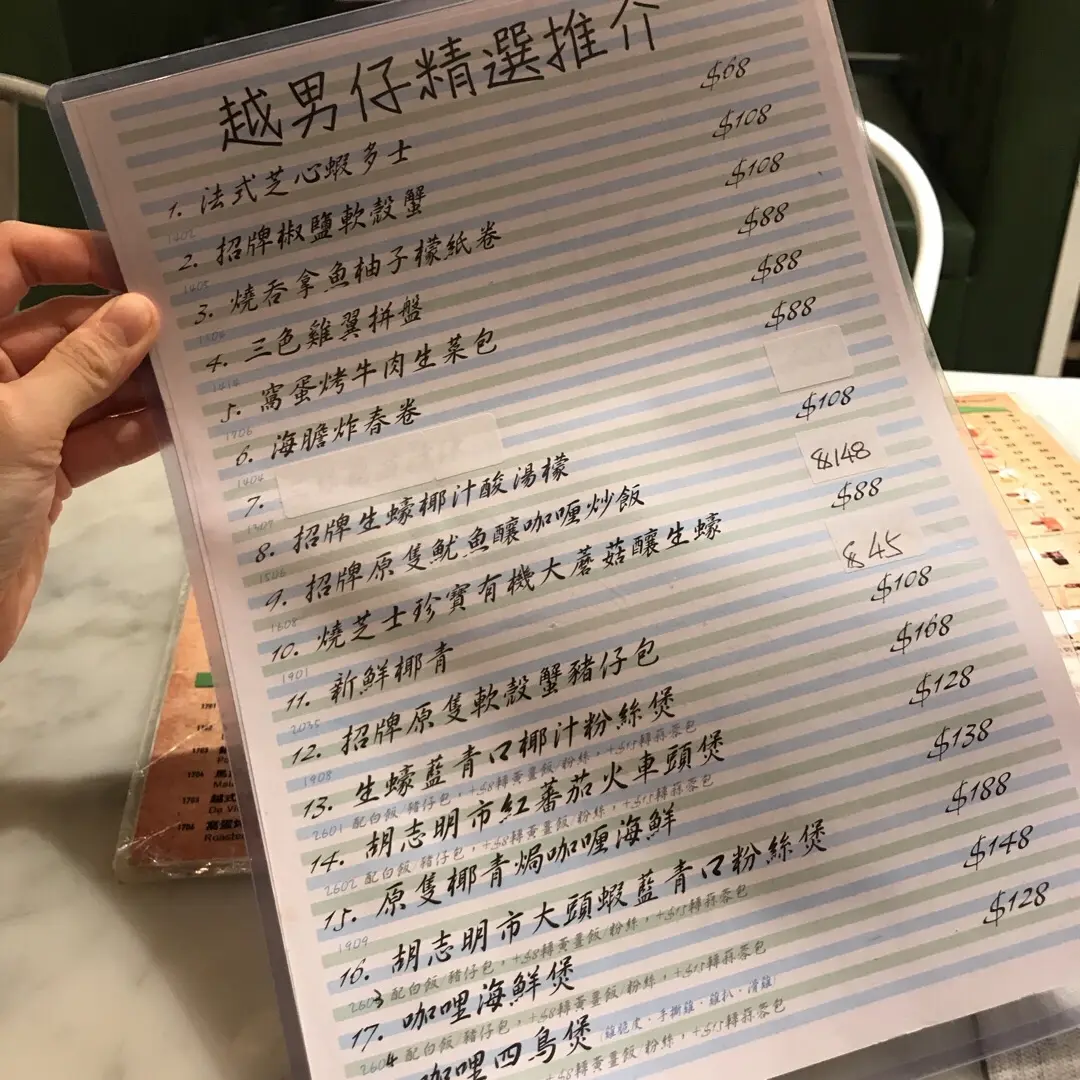 越男仔精選推介
1. 法式芝心蝦多士 $68
1402
2. 招牌椒鹽軟殼蟹 $108
1405
3. 燒吞拿魚柚子檬紙卷 $108
1306
4. 三色雞翼拼盤 $88
1414
5. 窩蛋烤牛肉生菜包 $88
1706
6. 海膽炸春卷 $88
1404
7.
1307
8. 招牌生蠔椰汁酸湯檬 $108
1506
9. 招牌原隻魷魚釀咖喱炒飯 $148
1608
10. 燒芝士珍寶有機大蘑菇釀生蠔 $88
1901
11. 新鮮椰青 $45
2035
12. 招牌原隻軟殼蟹豬仔包 $108
1908
13. 生蠔藍青口椰汁粉絲煲 $168
2601 配白飯/豬仔包,+$8轉黃薑飯/粉絲,+$15轉蒜蓉包
14. 胡志明市紅蕃茄火車頭煲 $128
2602 配白飯/豬仔包,+$8轉黃薑飯/粉絲,+$15轉蒜蓉包
15. 原隻椰青焗咖喱海鮮 $138
1909
16. 胡志明市大頭蝦藍青口粉絲煲 $188
2603 配白飯/豬仔包,+$8轉黃薑飯/粉絲,+$15轉蒜蓉包
17. 咖哩海鮮煲 $148
2604 配白飯/豬仔包,+$8轉黃薑飯/粉絲,+$15轉蒜蓉包
咖哩四鳥煲 (雞脆皮·手撕雞·雞扒·滑雞) $128
+$8轉黃薑飯/粉絲,+$15轉蒜蓉包
1701
1702
1703
1704 馬
1705 越式
De Vi
1706 窩蛋
Roaste